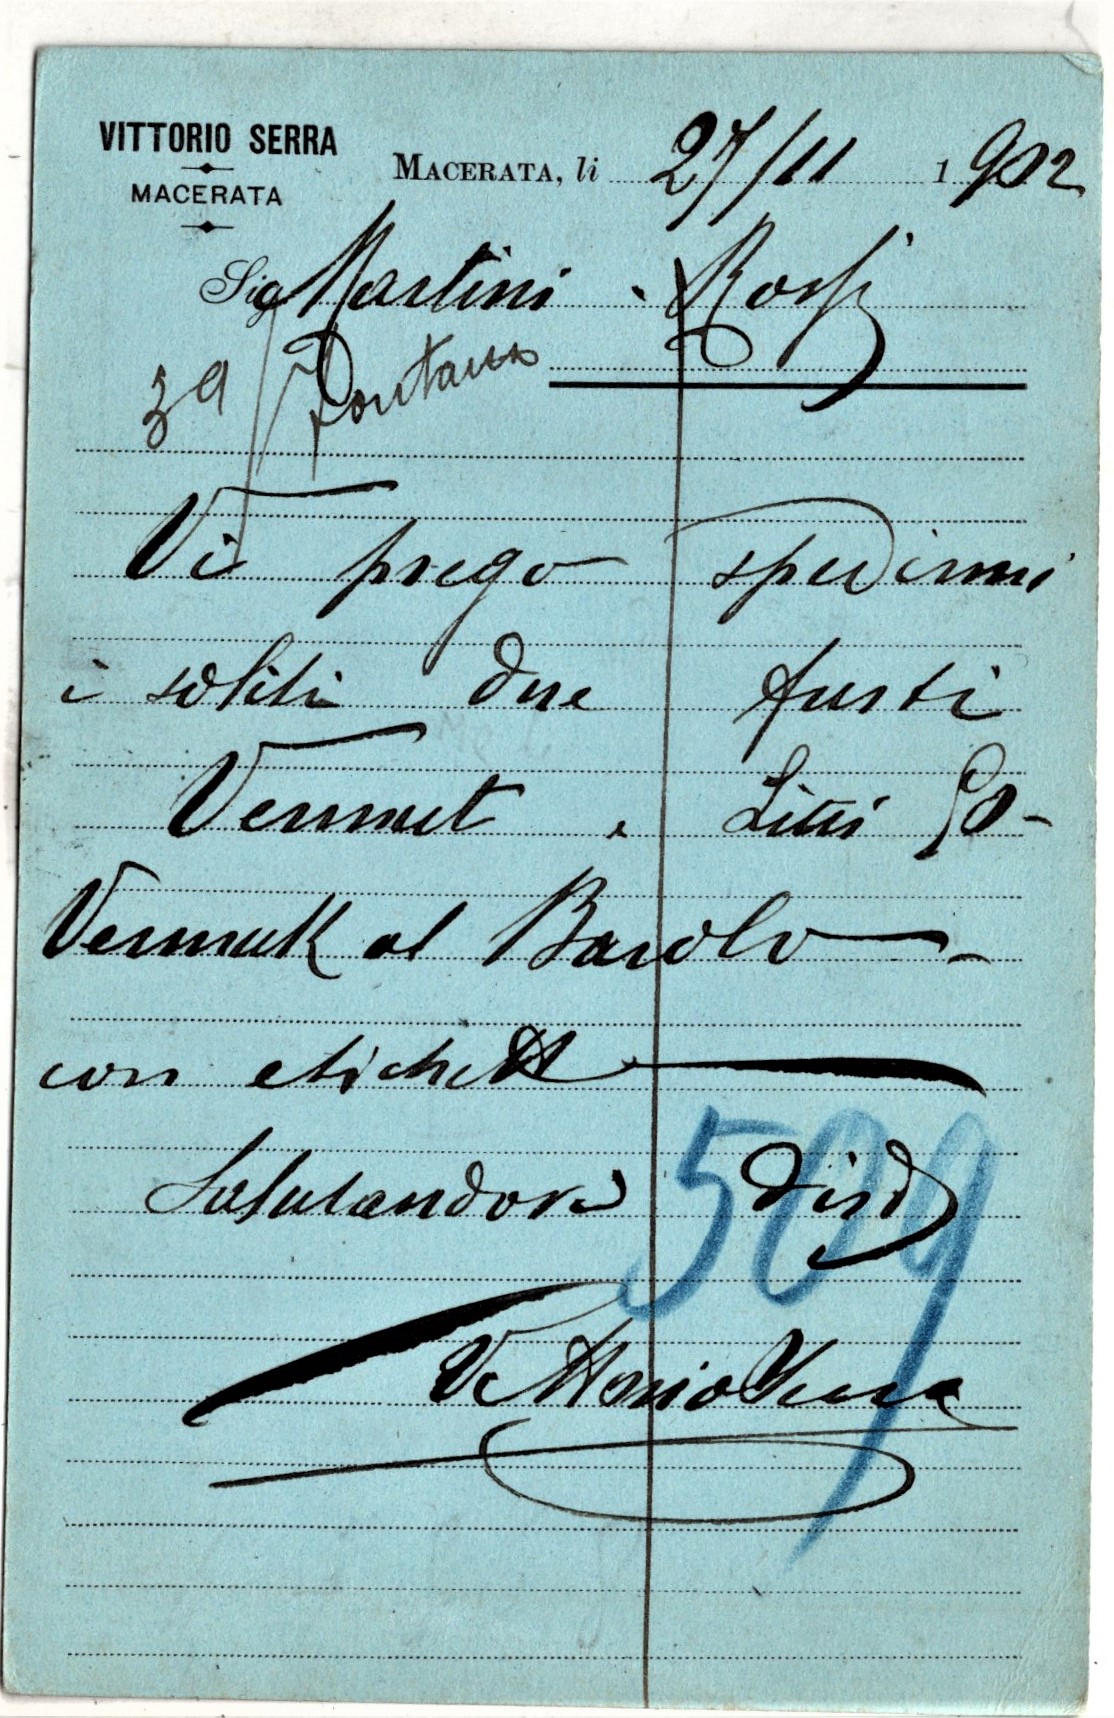 VITTORIO SERRA
MACERATA
MACERATA, li 27/11 1902
Sig Martini - Rossi
39 Fontana
Vi prego spedirmi
i soliti due fusti
Vermut e Litri 50-
Vermutt al Barolo -
con etichett
Salutandovi dist
509
Vittorio Serra